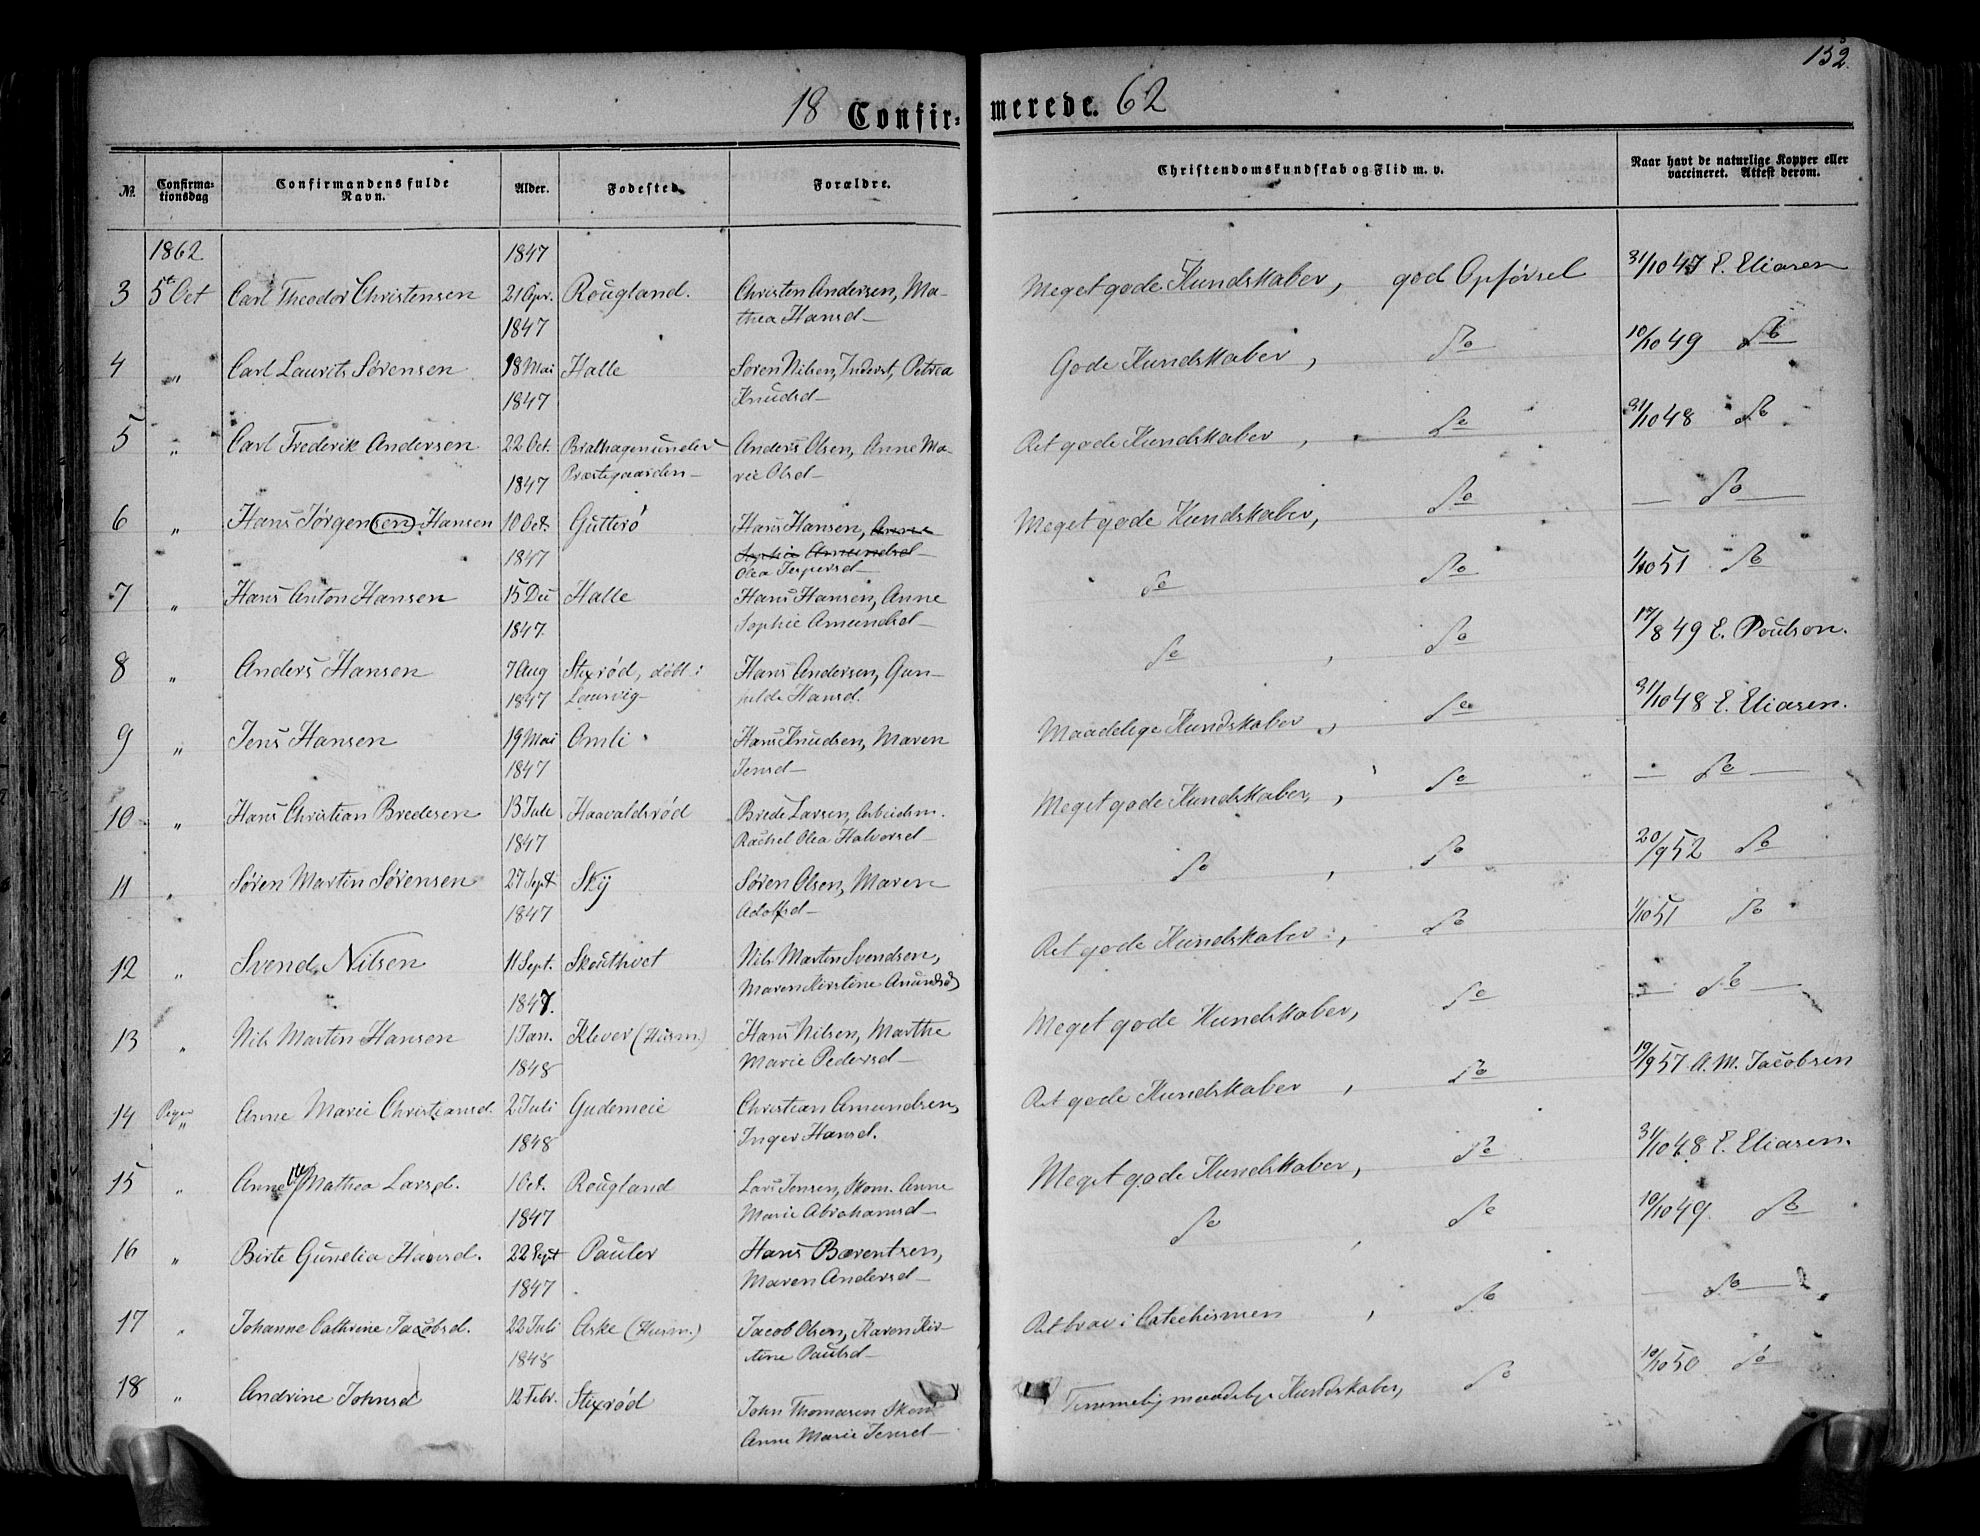 152.
18 Confir-merede. 62
No.
Confirma-tionsdag
Confirmandens fulde Navn.
Alder.
Fødested.
Forældre.
Christendomskundskab og Flid m. v.
Naar havt de naturlige Kopper eller vaccineret. Attest derom.
1862 1847
3 5te Oct Carl Theodor Christensen 21 Apr. Rougland. Christen Andersen, Ma- Meget gode Kundskaber, god Opførsel 31/10 47 E. Eliasen
1847 thea Hansd
4 " Carl Laurits Sørensen 18 Mai Halle Søren Nilsen, Inderst, Petrea Gode Kundskaber, Do 10/10 49 Do
1847 Knudsd
5 " Carl Frederik Andersen 22 Oct. Brathagen under Anders Olsen, Anne Ma- Ret gode Kundskaber, Do 31/10 48 Do
1847 Præstegaarden rie Olsd
6 " Hans Jørgen(sen) Hansen 10 Oct. Gutterø Hans Hansen, Anne Meget gode Kundskaber, Do — Do —
1847 Sophie Amundsd
Olea Jespersd
7 " Hans Anton Hansen 15 Dec Halle Hans Hansen, Anne Do Do 1/10 51 Do
1847. Sophie Amundsd
8 " Anders Hansen 7 Aug Stixrød, døbt i Hans Andersen, Gun- Do, Do 17/8 49 E. Poulson.
1847 Laurvig hilde Hansd.
9 " Jens Hansen 19 Mai Omli Hans Knudsen, Maren Maadelige Kundskaber, Do 31/10 48 E. Eliasen.
1847 Jensd
10 " Hans Christian Bredesen 13 Jule Haavaldsrød Brede Larsen, Arbeidsm. Meget gode Kundskaber, Do — Do —
1847 Rachel Olea Halvorsd
11 " Søren Martin Sørensen 27 Sept Sky Søren Olsen, Maren Do, Do 20/9 52 Do
1847 Adolfsd
12 " Svend Nilsen 11 Sept. Skouthvet Nils Martin Svendsen, Ret gode Kundskaber, Do 1/10 51 Do
1847. Maren Kirstine Anundsd
13 " Nils Martin Hansen 1 Jan. Klever (Husm.) Hans Nilsen, Marthe Meget gode Kundskaber, Do — Do —
1848 Marie Pedersd
14 Piger " Anne Marie Christiansd. 2 Juli Gudemeie Christian Amundsen, Ret gode Kundskaber, Do 19/9 57 A. M. Jacobsen
1848 Inger Hansd.
15 " Anne Mathea Larsd. 1 Oct. Rougland Lars Jensen, Skom. Anne Meget gode Kundskaber, Do 31/10 48 E. Eliasen.
1847 Marie Abrahamsd
16 " Birte Gunelia Hansd. 22 Sept Pauler Hans Bærentsen, Do, Do 10/10 49 Do
1847 Maren Andersd
17 " Johanne Cathrine Jacobsd. 22 Juli Aske (Husm.) Jacob Olsen, Karen Kir- Ret brav i Catechismen, Do — Do —
1848 stine Paulsd
18 " Andrine Johnsd 12 Febr. Stixrød John Thomasen Skom Temmelig maadelige Kundskaber, Do 10/10 50 Do
Anne Marie Jensd